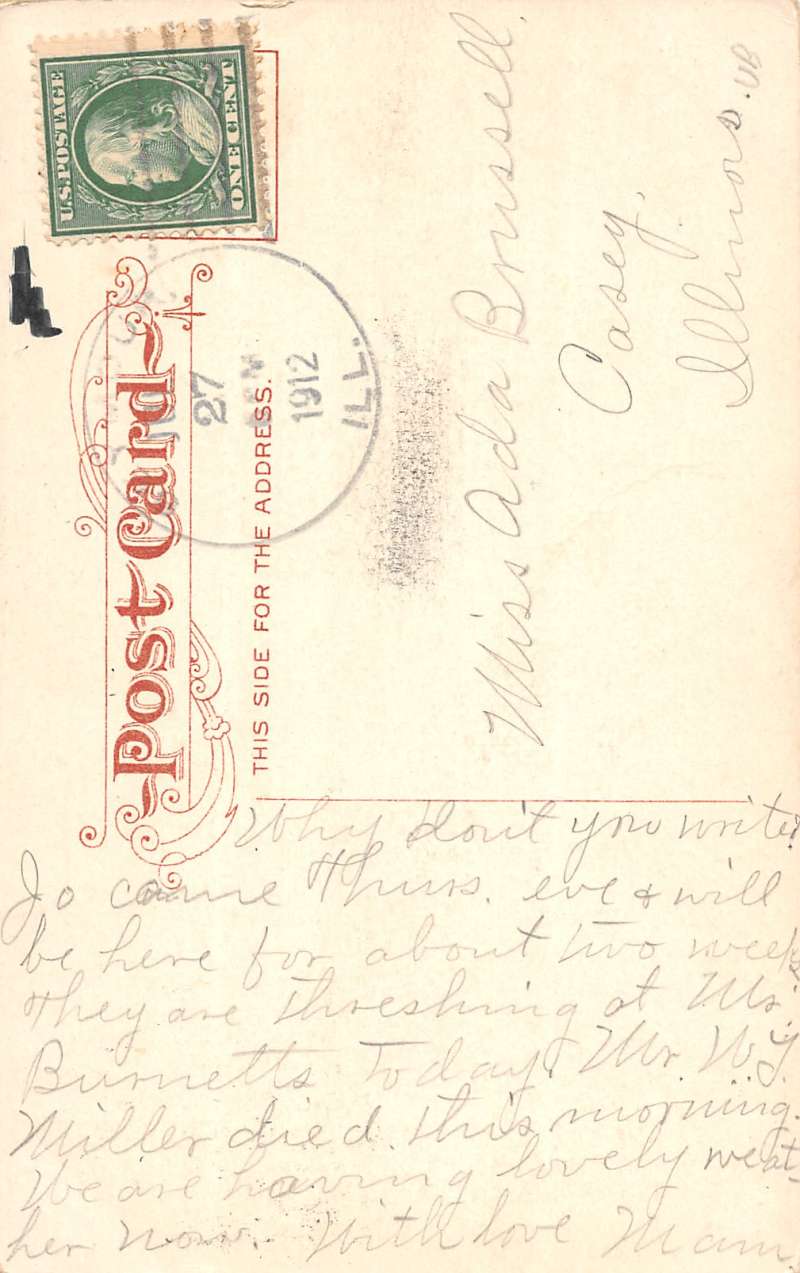 U.S. POSTAGE
ONE CENT
27
1912
ILL.
Post Card
THIS SIDE FOR THE ADDRESS.
Miss Ada Brussell.
Casey,
Illinois.
Why don't you write?
Jo came Thurs. eve & will
be here for about two weeks
They are threshing at Mr
Burnetts today. Mr. W.J.
Miller died this morning.
We are having lovely weat-
her now. With love Mam